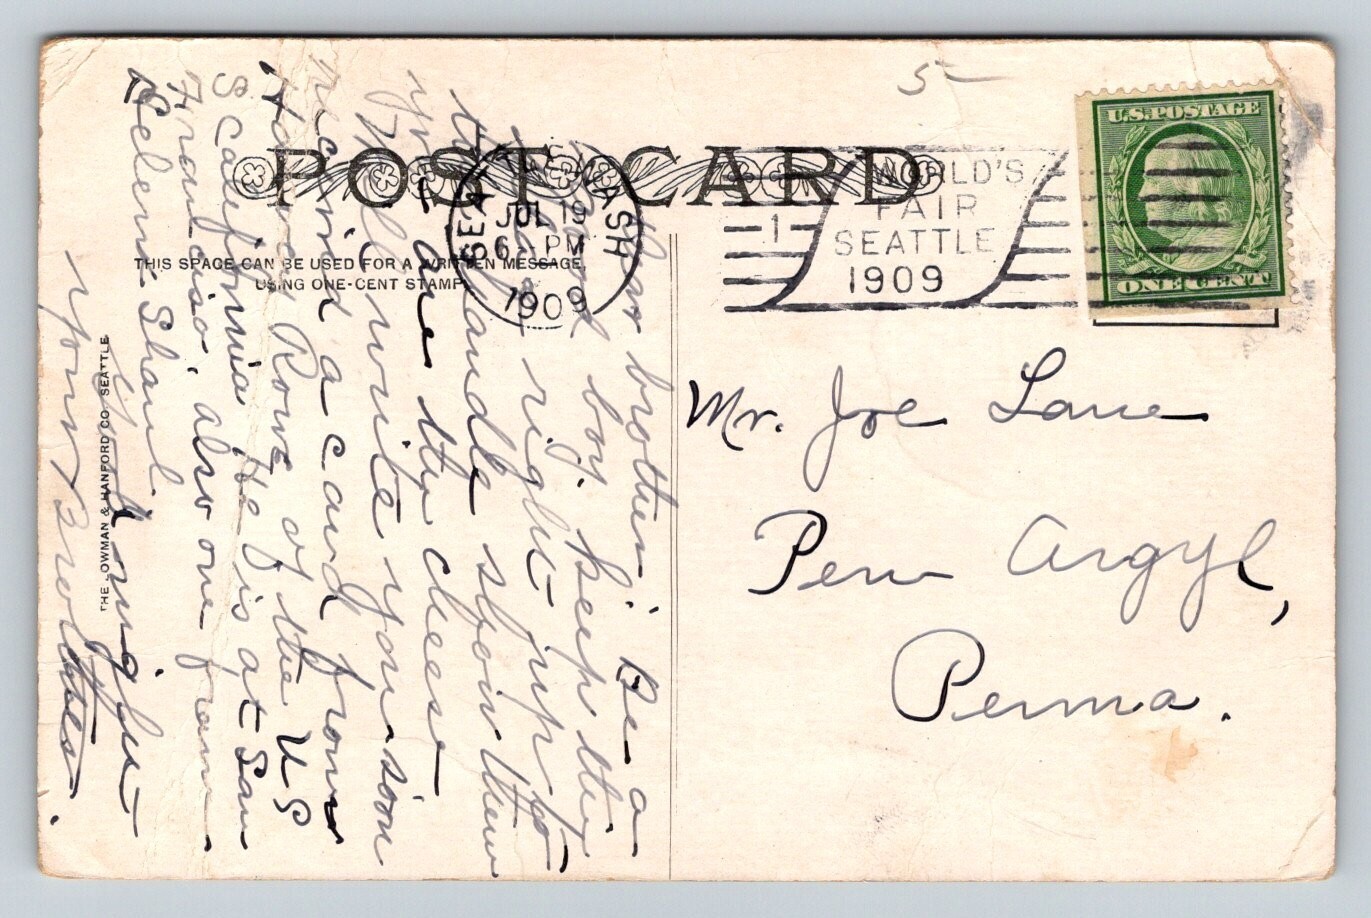 5-
POST CARD
SEATTLE, WASH
JUL 19
6 - PM
1909
1
WORLD'S
FAIR
SEATTLE
1909
U.S. POSTAGE
ONE CENT
THIS SPACE CAN BE USED FOR A WRITTEN MESSAGE,
USING ONE-CENT STAMP.
THE LOWMAN & HANFORD CO. SEATTLE.
Mr. Joe Lane
Pen Argyl,
Penna.
Dear brother: Be a
good boy, keep the
right up to
the handle show them
you are the cheese
Will write you soon
Rec'vd a card from
Harvey Rowe of the U S
S California He is at San
Francisco, also one from
Helen Shaul.
Good night
Your Brother